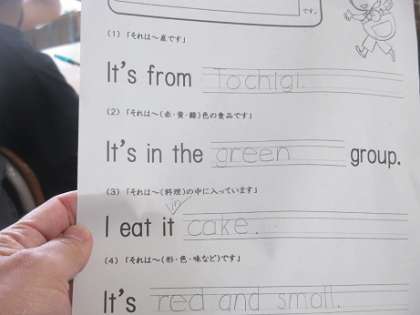 です。
(1)「それは〜産です」
It's from Tochigi.
(2)「それは〜(赤・黄・緑)色の食品です」
It's in the green group.
(3)「それは〜(料理)の中に入っています」
in
I eat it cake.
(4)「それは〜(形・色・味など)です」
It's red and small.